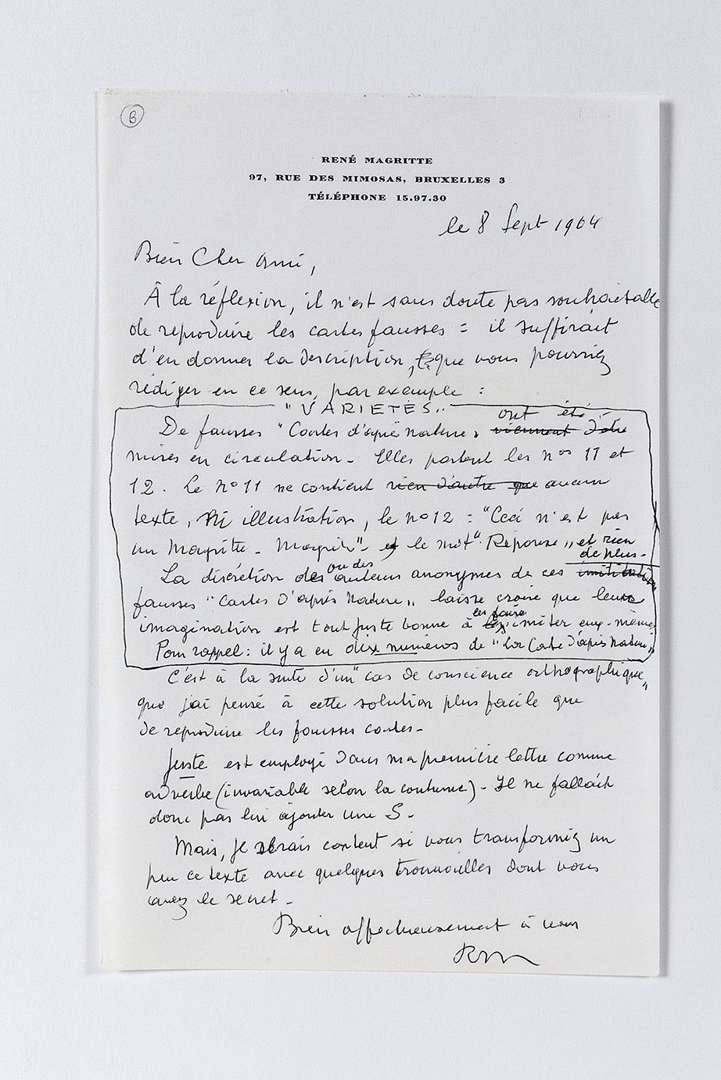 B
RENÉ MAGRITTE
97, RUE DES MIMOSAS, BRUXELLES 3
TÉLÉPHONE 15.97.30
le 8 Sept 1964
Bien Cher Ami,
À la réflexion, il n'est sans doute pas souhaitable
de reproduire les cartes fausses : il suffirait
d'en donner la description, que vous pourriez
rédiger en ce sens, par exemple :
"VARIETES"
De fausses "Cartes d'après nature" ont été viennent d'être
mises en circulation - Elles portent les nos 11 et
12. Le n° 11 ne contient rien d'autre que aucun
texte, ni illustration, le n° 12 : "Ceci n'est pas
un Magritte - Magritte" - et le mot "Réponse" et rien
de plus -
La discrétion des ou des auteurs anonymes de ces
fausses "Cartes d'après Nature" laisse croire que leur
imagination est tout juste bonne à les faire imiter eux-mêmes
Pour rappel : il y a eu dix numéros de "La Carte d'après Nature"
C'est à la suite d'un "cas de conscience orthographique"
que j'ai pensé à cette solution plus facile que
de reproduire les fausses cartes -
Juste est employé dans ma première lettre comme
adverbe (invariable selon la coutume) - Il ne fallait
donc pas lui ajouter une S -
Mais, je serais content si vous transformiez un
peu ce texte avec quelques trouvailles dont vous
avez le secret -
Bien affectueusement à vous
RM